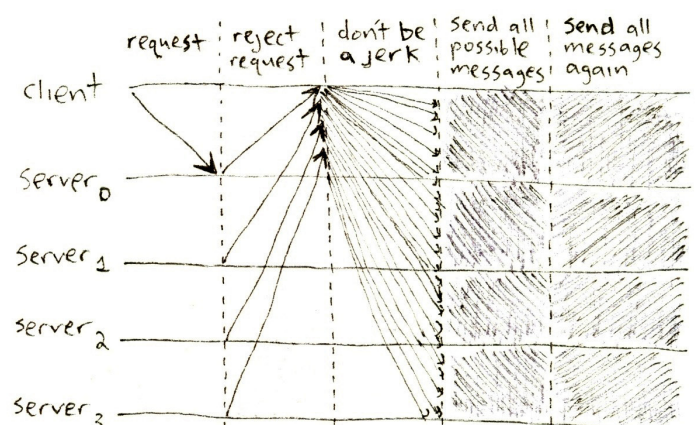 request
reject
request
don't be
a jerk
Send all
possible
messages
Send all
messages
again
client
Server 0
Server 1
Server 2
Server 3